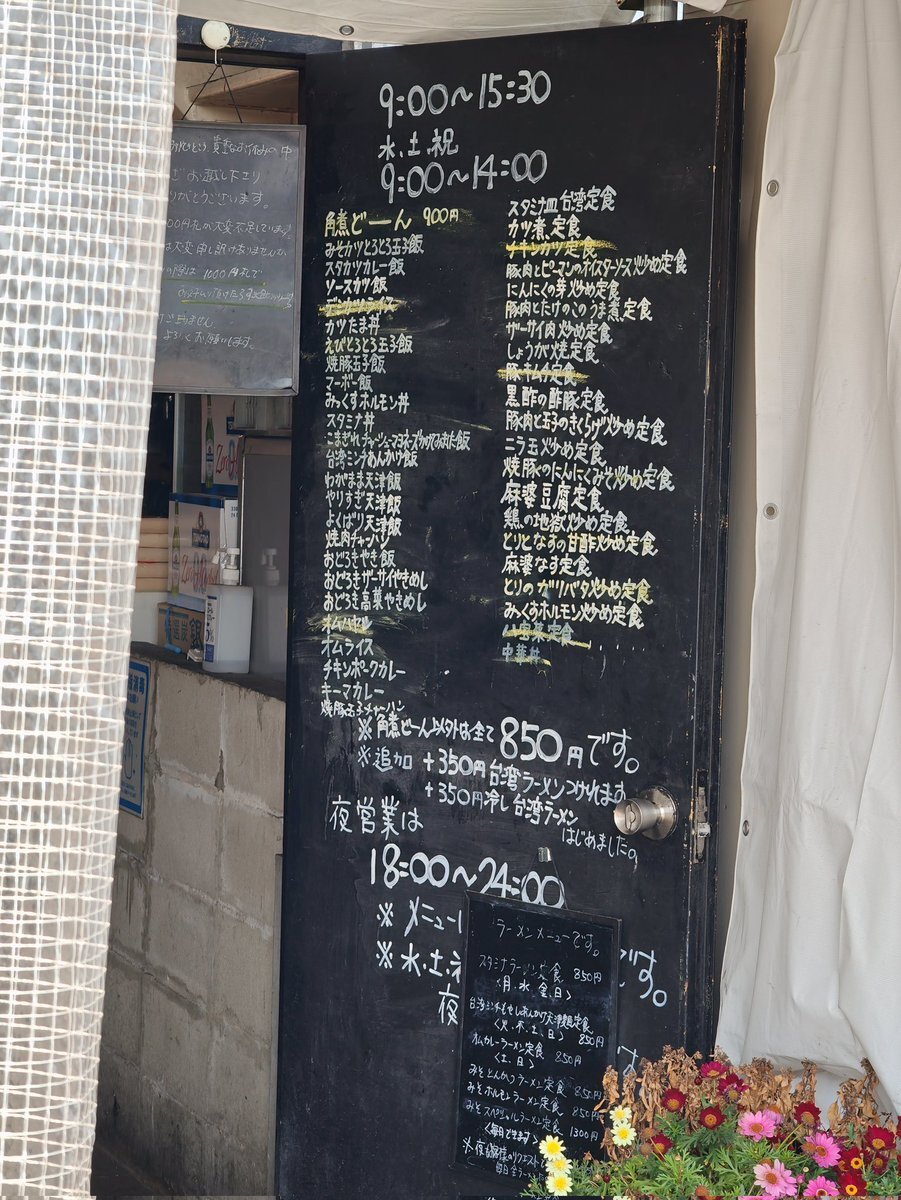 9:00~15:30
水、土、祝
9:00~14:00
角煮どーん 900円
みそカツとろとろ玉子飯
スタカツカレー飯
ソースカツ飯
カツたま丼
えびとろとろ玉子飯
焼豚玉子飯
マーボー飯
みっくすホルモン丼
スタミナ丼
こまぎれチャーシューマヨネーズかけてみました飯
台湾ミンチあんかけ飯
わがまま天津飯
やりすぎ天津飯
よくばり天津飯
焼肉チャーハン
おどろきやき飯
おどろきザーサイやきめし
おどろき高菜やきめし
オムハヤシ
オムライス
チキンポークカレー
キーマカレー
焼豚玉子チャーハン
スタミナ皿 台湾定食
カツ煮定食
チキンカツ定食
豚肉とピーマンのオイスターソース炒め定食
にんにくの芽炒め定食
豚肉とたけのこのうま煮定食
ザーサイ肉炒め定食
しょうが焼定食
豚キムチ定食
黒酢の酢豚定食
豚肉と玉子のきくらげ炒め定食
ニラ玉炒め定食
焼豚のにんにくみそ炒め定食
麻婆豆腐定食
鶏の地獄炒め定食
とりとなすの甘酢炒め定食
麻婆なす定食
とりのガリバタ炒め定食
みっくすホルモン炒め定食
定食
中華丼
※角煮どーん以外は全て850円です。
※追加 +350円台湾ラーメンつけれます
+350円冷し台湾ラーメン
はじめました。
夜営業は
18:00~24:00
※メニュー
※水、土、
夜
です。
ラーメンメニューです。
スタミナラーメン定食 850円
(月、水、金、日)
台湾ミンチもやしあんかけ天津麺定食
(火、木、土、日) 850円
オムカレーラーメン定食 850円
(土、日)
みそとんかつラーメン定食 850円
みそホルモンラーメン定食 850円
みそスペシャルラーメン定食 1300円
(毎日できます)
1000円札で
ありがとうございます。
よろしくお願いします。